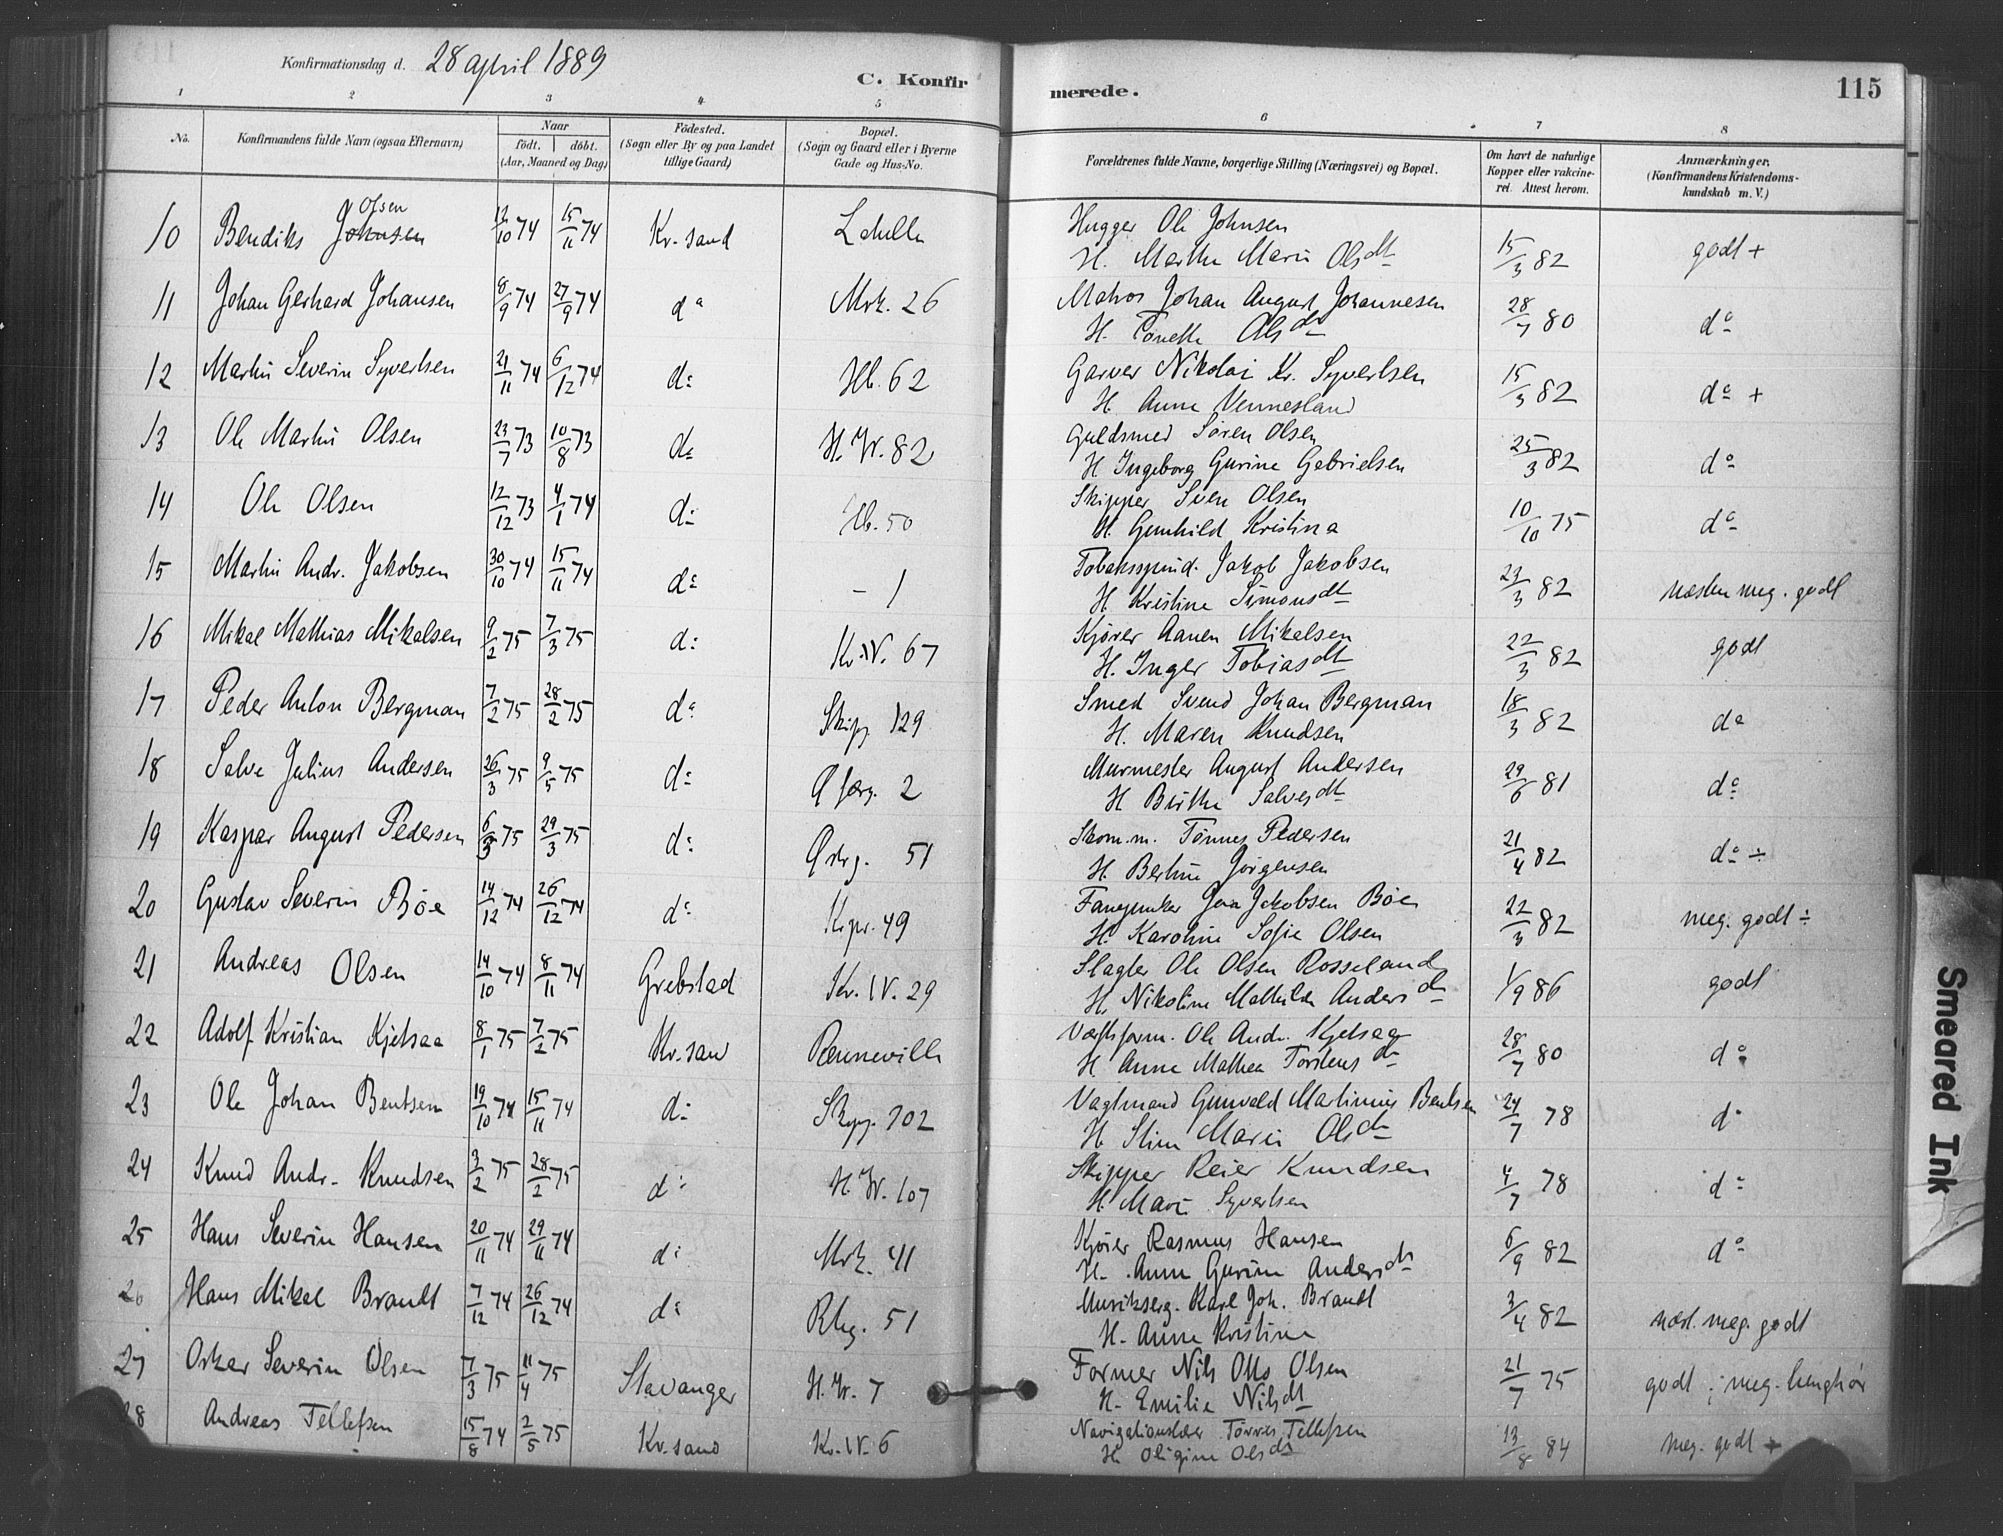 Konfirmationsdag d. 28 april 1889
C. Konfirmerede.
115
1 2 3 4 5 6 7 8
No. Konfirmandens fulde Navn (ogsaa Efternavn) Naar födt. döbt. (Aar, Maaned og Dag) Födested. (Sogn eller By og paa Landet tillige Gaard) Bopæl. (Sogn og Gaard eller i Byerne Gade og Hus-No. Forældrenes fulde Navne, borgerlige Stilling (Næringsvei) og Bopæl. Om havt de naturlige Kopper eller vakcineret. Attest herom. Anmærkninger, (Konfirmandens Kristendomskundskab m. V.)
Olsen
10 Bendiks Johnsen 12/10 74 15/11 74 Kr.sand Hugger Ole Johnsen
H. Marthe Marie Olsdt 15/3 82 godt +
11 Johan Gerhard Johansen 8/9 74 27/9 74 do Mrk. 26 Matros Johan August Johannesen
H. Tonette Olsdt 28/7 80 do
12 Martin Severin Syvertsen 21/11 74 6/12 74 do Hb. 62 Garver Nikolai Kr. Syvertsen
H. Anne Vennesland 15/3 82 do +
13 Ole Martin Olsen 23/7 73 10/8 73 do H. W. 82 Guldsmed Søren Olsen
H. Ingeborg Gurine Gabrielsen 25/3 82 do
14 Ole Olsen 12/12 73 4/1 74 do Hb. 50 Skipper Sven Olsen
H. Gunhild Kristina 10/10 75 do
15 Martin Andr. Jakobsen 30/10 74 15/11 74 do – 1 Tobakspind. Jakob Jakobsen
H. Kristine Simonsdt 23/3 82 næsten meg. godt
16 Mikal Mathias Mikalsen 9/2 75 7/3 75 do Kr. W. 67 Kjører Aanen Mikalsen
H. Inger Tobiasdt 22/3 82 godt
17 Peder Anton Bergman 7/2 75 28/2 75 do Skipp 129 Smed Svend Johan Bergman
H. Maren Knudsen 18/3 82 do
18 Salve Julius Andersen 26/3 75 9/5 75 do 2 Murmester August Andersen
H Birthe Salvesdt 29/6 81 do
19 Kaspar August Pedersen 6/3 75 29/3 75 do 51 Skom.m. Tønnes Pedersen
H. Bertine Jørgensen 21/4 82 do ÷
20 Gustav Severin Bøe 14/12 74 26/12 74 do 49 Jakobsen Bøe
H. Karoline Sofie Olsen 22/3 82 meg. godt ÷
21 Andreas Olsen 14/10 74 8/11 74 Grebstad Kr. W. 29 Slagter Ole Olsen Rosseland
H. Nikoline Mathilde Andersdt 1/9 86 godt
22 Adolf Kristian Kjetsaa 8/1 75 7/2 75 Kr.san Værftsform. Ole Andr. Kjetsaa
H Anne Mathea Torstensdt 28/7 80 do
23 Ole Johan Bentsen 19/10 74 15/11 74 do 102 Vagtmand Gunvald Martinius Bentsen
H. Stine Marie Olsdt 24/7 78 do
24 Knud Andr. Knudsen 3/2 75 28/2 75 do H. W. 107 Skipper Reier Knudsen
H. Marie Syvertsen 4/7 78 do
25 Hans Severin Hansen 20/11 74 29/11 74 do Mrk. 41 Kjører Rasmus Hansen
H. Anne Gurine Andersdt 6/9 82 do
26 Hans Mikal Brandt 7/12 74 26/12 74 do 51 Musikserg. Karl Joh. Brandt
H. Anne Kristine 3/4 82 næst. meg. godt
27 Oskar Severin Olsen 7/3 75 11/4 75 Stavanger H. W. 7 Former Nils Otto Olsen
H. Emilie Nilsdt 21/7 75 godt ; meg.
28 Andreas Tellefsen 15/8 74 2/5 75 Kr.sand Kr. W. 6 Navigationslær Tørres Tellefsen
H. Oligine Olsdt 13/8 84 meg. godt +
Smeared Ink